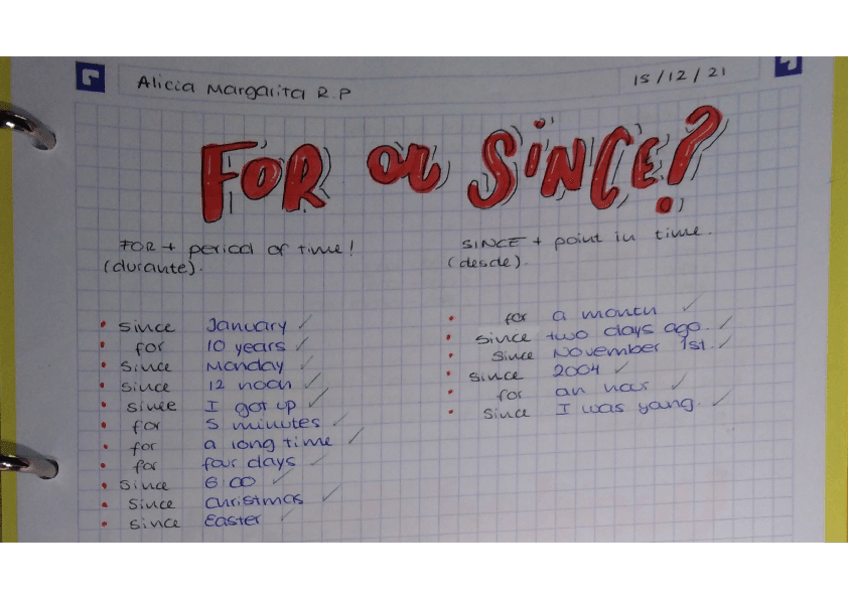 Alicia Margarita R.P
15/12/21
FOR or SiNCe?
FOR + period of time!
(durante).
SINCE + point in time.
(desde).
• since January ✓
• for 10 years ✓
• since Monday ✓
• since 12 noon ✓
• since I got up ✓
• for 5 minutes ✓
• for a long time ✓
• for four days ✓
• since 6:00 ✓
• since Christmas ✓
• since Easter ✓
• for a month ✓
• since two days ago. ✓
• since November 1st. ✓
• since 2004 ✓
• for an hour ✓
• since I was young. ✓